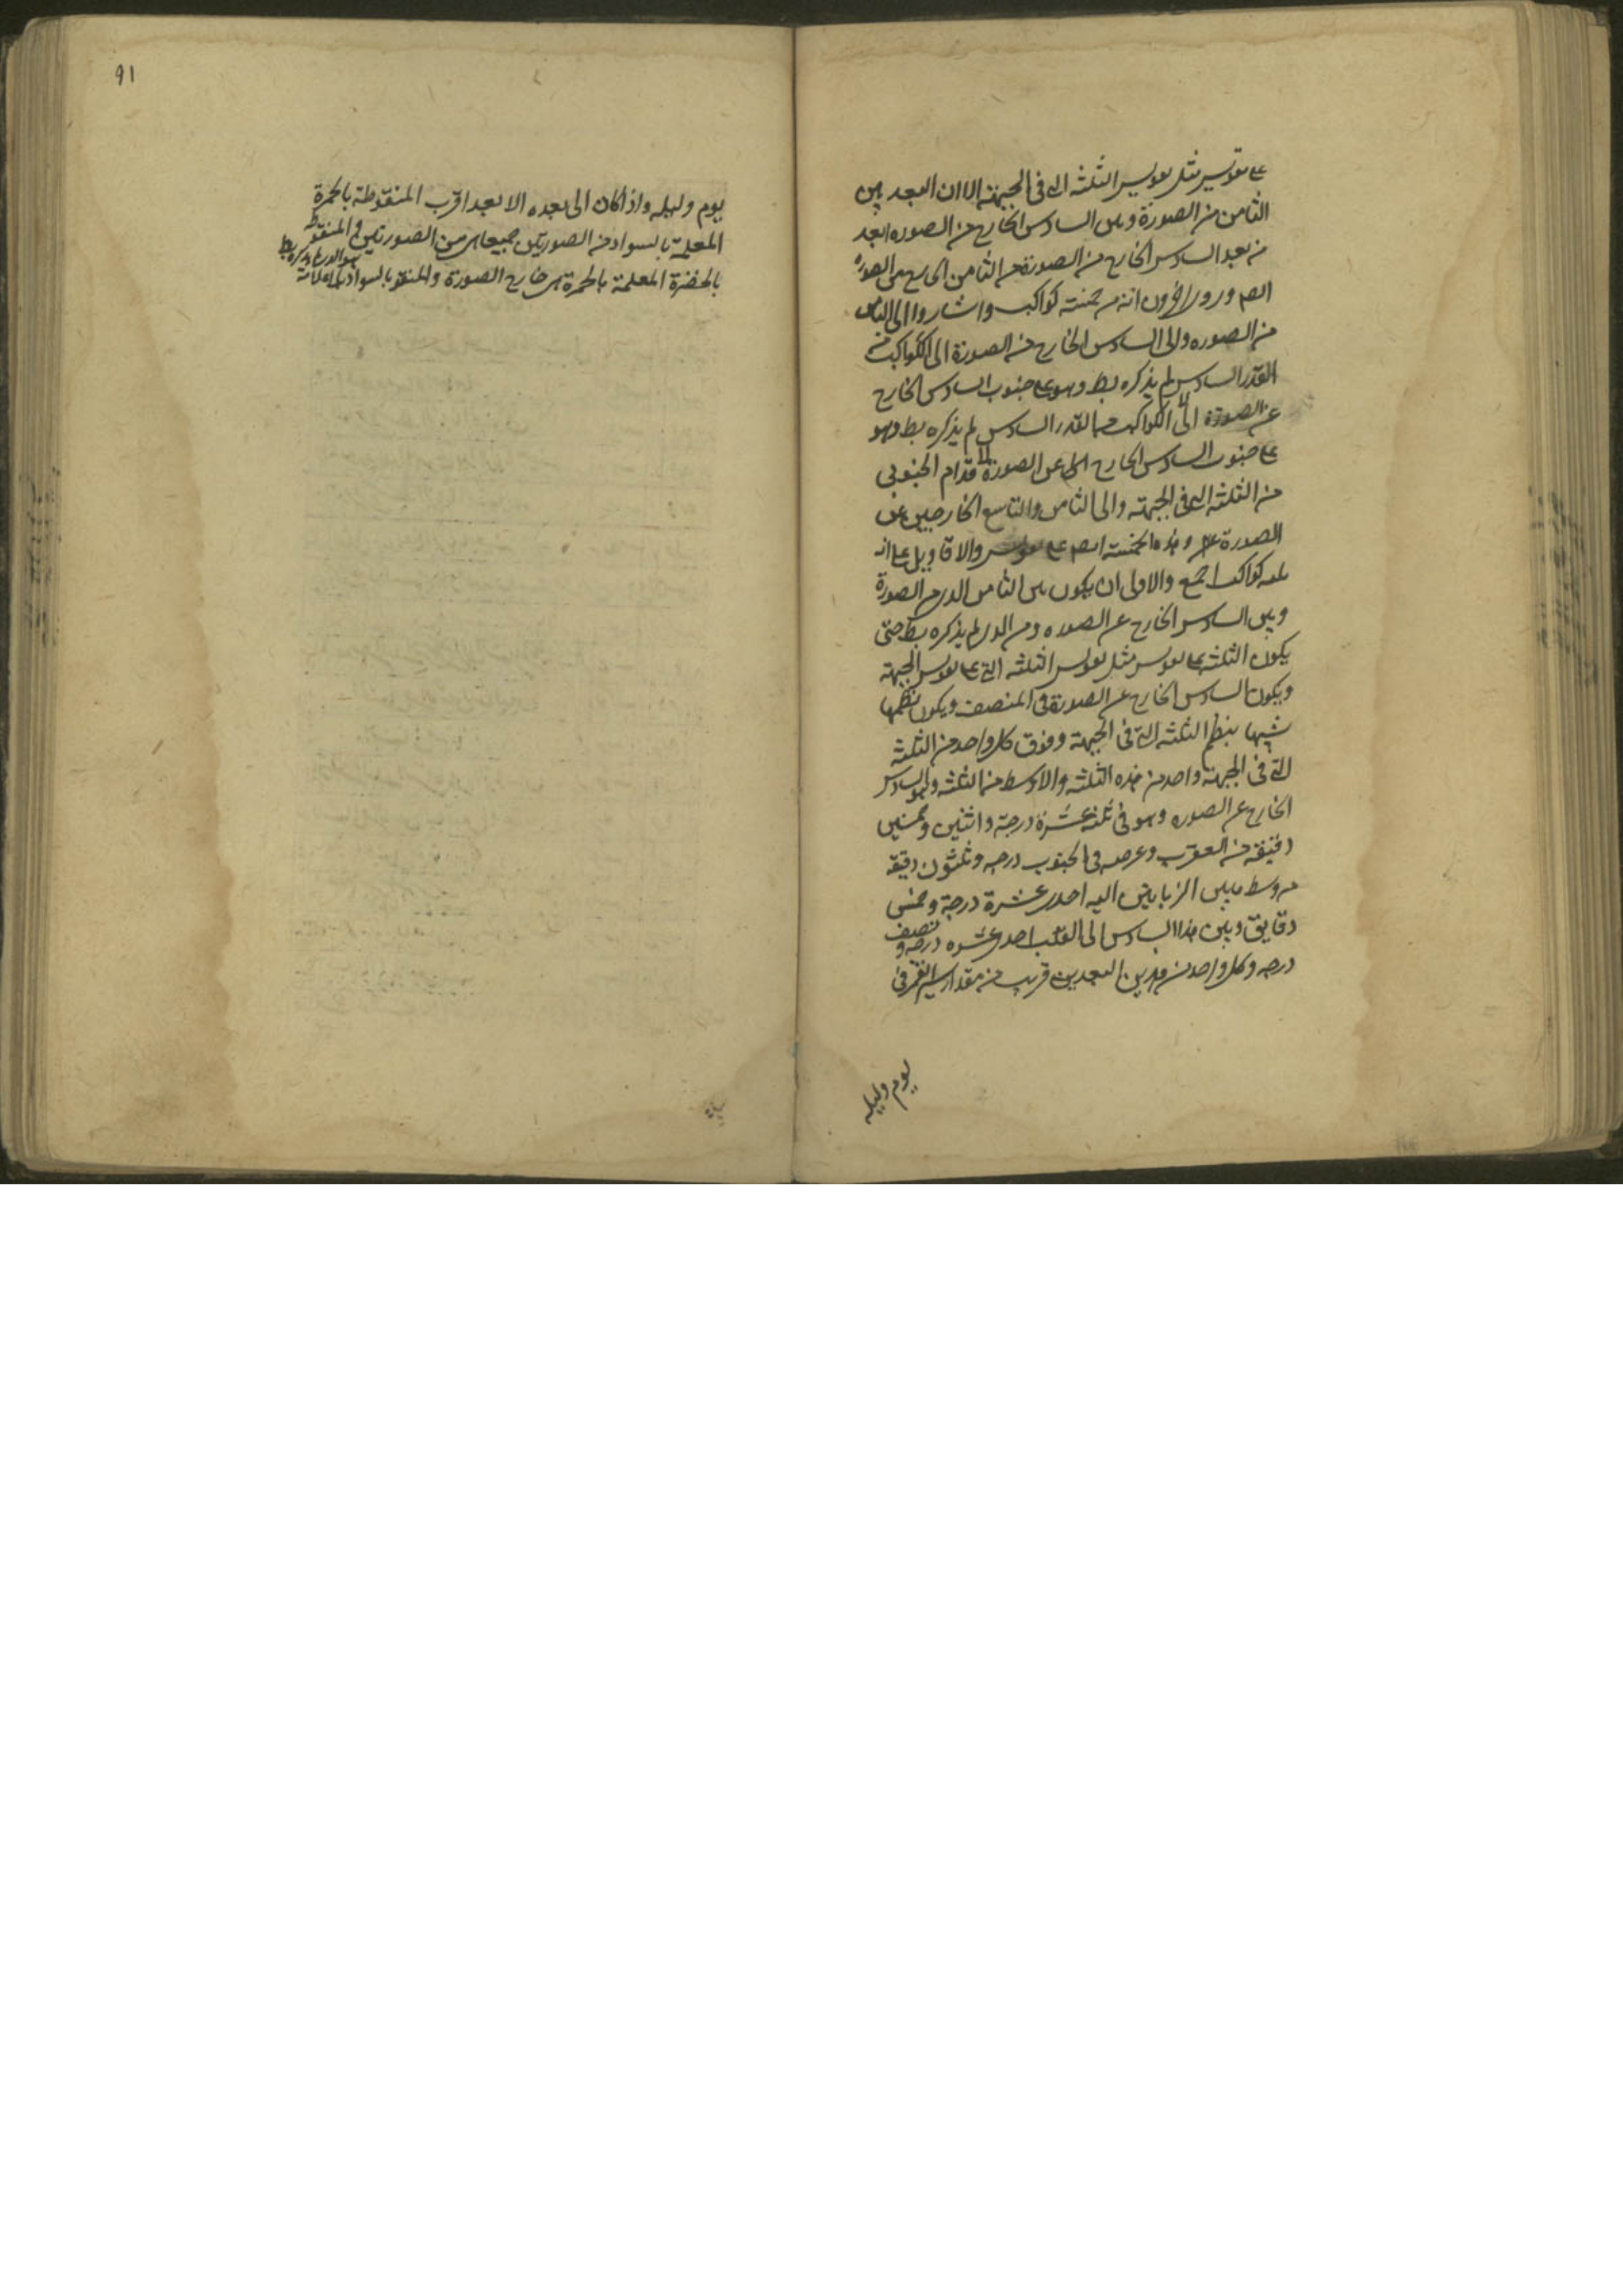 على تقويس مثل تقويس الثلثة التى فى الجبهة الا ان البعد بين
الثامن من الصورة وبين السادس الخارج من الصوره ابعد
من بعد السادس الخارج من الصورة من الثامن الخارج من الصوره
وروى اخرون انه خمسة كواكب واشاروا الى الثامن
من الصوره والى السادس الخارج من الصورة الى الكواكب من
القدر السادس لم يذكره بط وهو على جنوب السادس الخارج
عن الصورة الى الكواكب من القدر السادس لم يذكره بط وهو
على جنوب السادس الخارج عن الصورة قدام الجنوبى
من الثلثة التى فى الجبهة والى الثامن والتاسع الخارجين عن
الصورة وهذه الخمسة على تقويس والاقاويل على انه
كواكب اجمع والاولى ان يكون بين الثامن الذى من الصورة
وبين السادس الخارج عن الصوره ومن الذى لم يذكره بط حتى
يكون الثلثة على تقويس مثل تقويس الثلثه التى على تقويس الجبهة
ويكون السادس الخارج عن الصورة فى المنصف ويكون نظمها
شبيها بنظم الثلثه التى فى الجبهة وفوق كل واحد من الثلثة
التى فى الجبهة واحد من هذه الثلثه والاوسط من الثلثه وهو السادس
الخارج عن الصوره وهو فى ثلثة عشرة درجة واثنين وخمسين
دقيقة من العقرب وعرضه فى الجنوب درجه وثلثون دقيقه
من وسط ما بين الزبانيين اليه احدى عشرة درجة وخمس
دقايق وبين هذا السادس الى القلب احدى عشره درجه ونصف
درجه وكل واحد من هذين البعدين قريب من مقدار سير القمر فى
يوم وليله
91
يوم وليله واذا كان الى بعده الابعد اقرب المنقوطة بالحمرة
المعلمة بالسواد من الصورتين جميعا هى من الصورتين والمنقوطة
بالخضرة المعلمة بالحمرة هى خارج الصورة والمنقو بالسواد بلا علامة
هو الذى ما ذكره بط